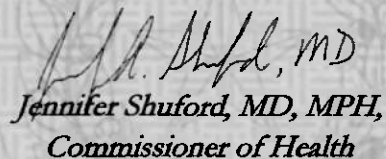 Jennifer Shuford, MD, MPH,
Commissioner of Health